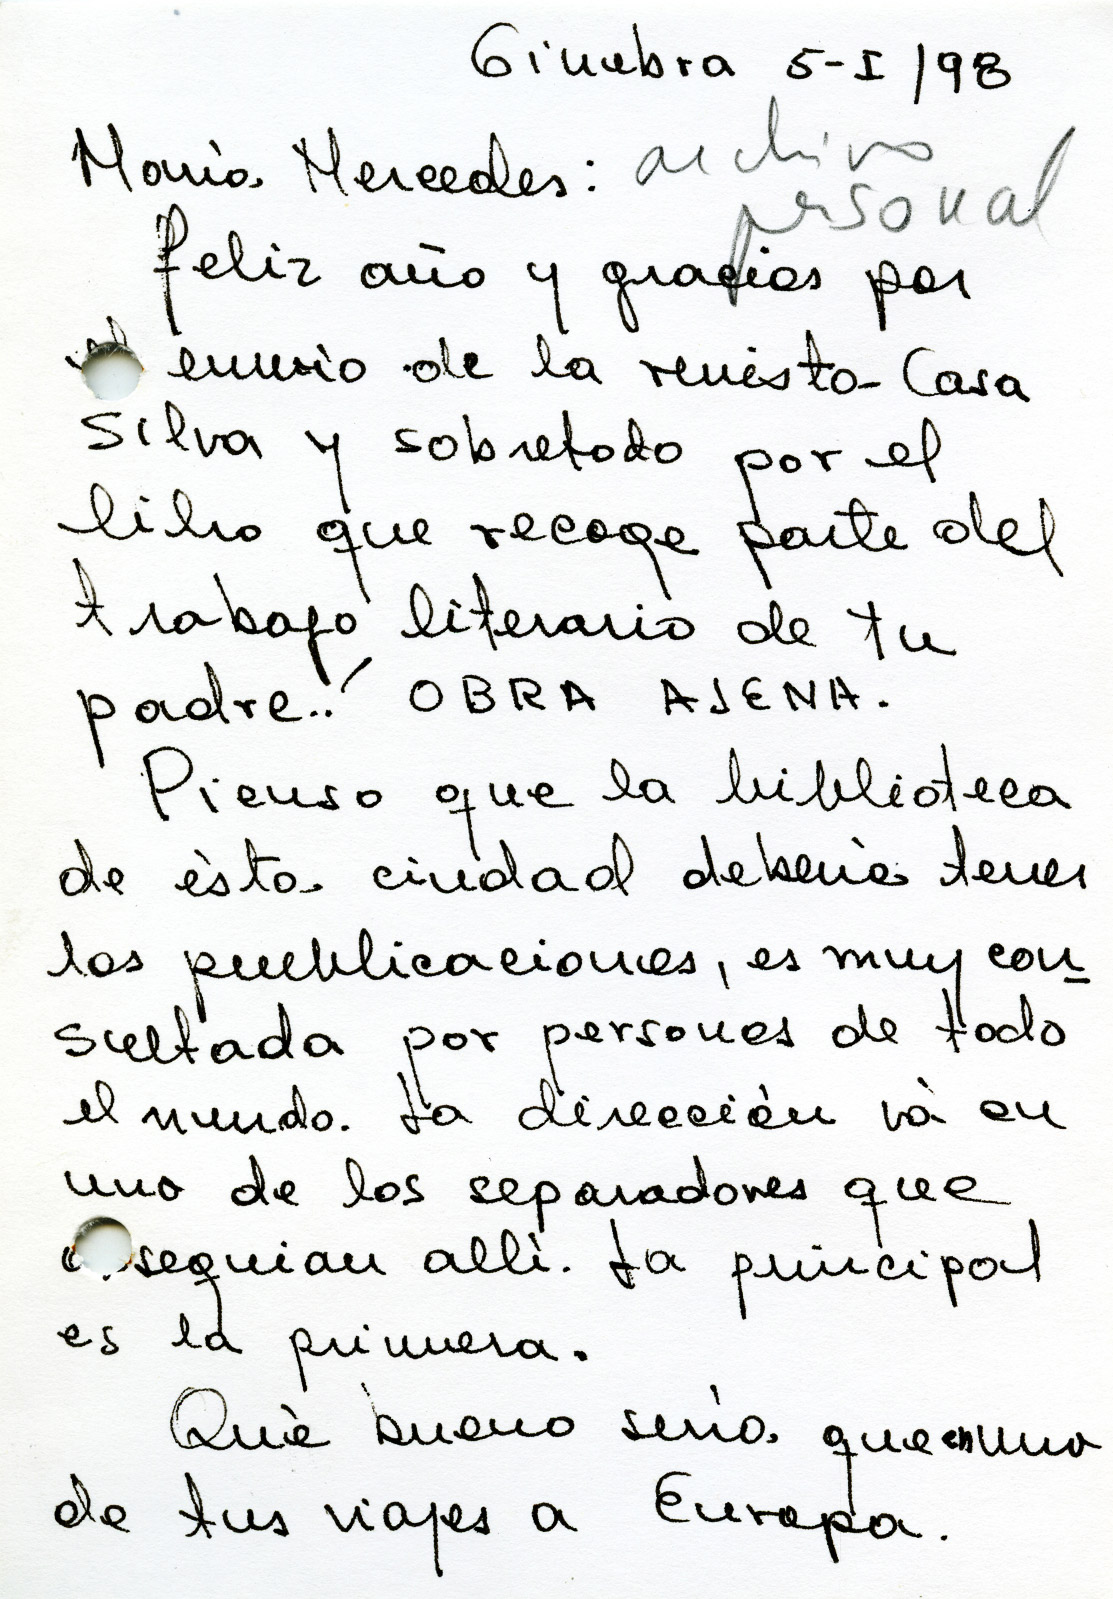 Ginebra 5-I/98
María Mercedes:
archivo
personal
feliz año y gracias por
el envio de la revista Casa
Silva y sobretodo por el
libro que recoge parte del
trabajo literario de tu
padre..! OBRA AJENA.
Pienso que la biblioteca
de èsta ciudad deberìa tener
las publicaciones, es muy con-
sultada por personas de todo
el mundo. La direcciòn và en
uno de los separadores que
obsequian allì. La principal
es la primera.
Què bueno serìa que en uno
de tus viajes a Europa.